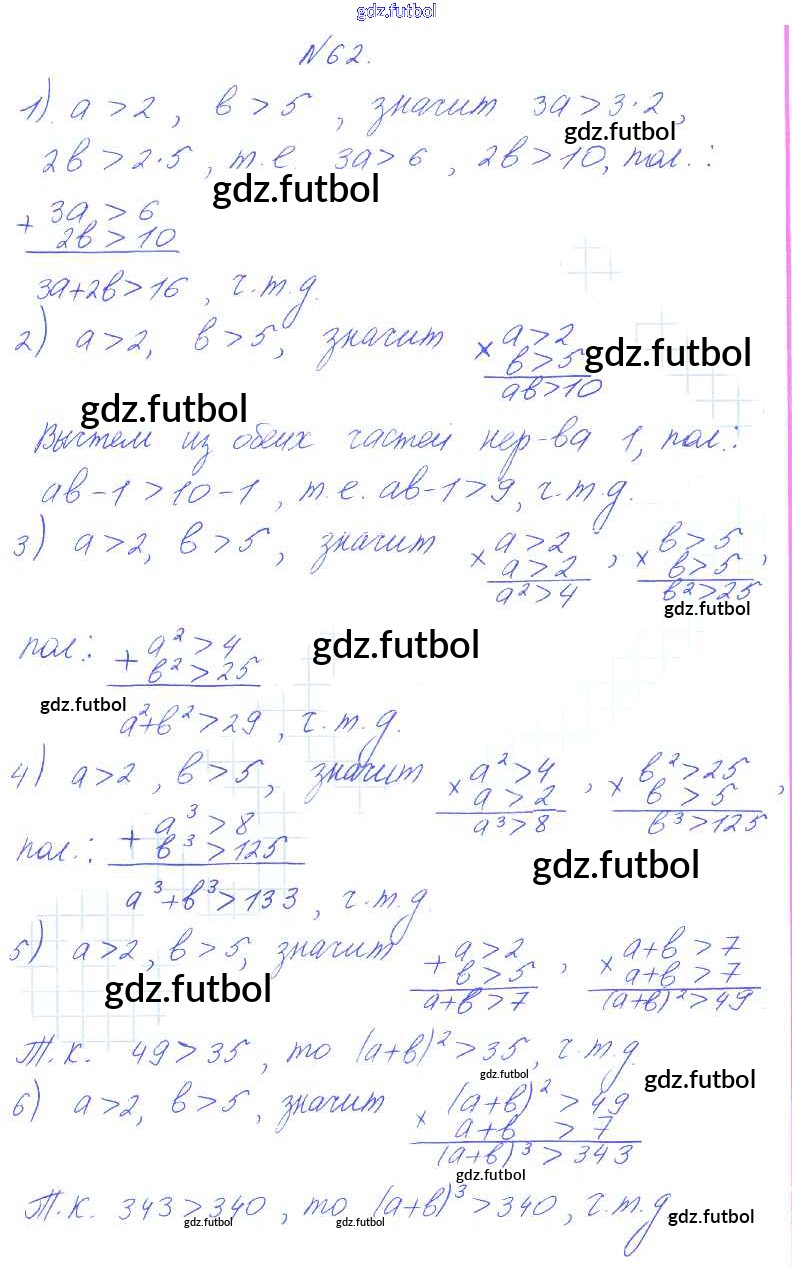 gdz.futbol
№62.
1) a > 2 , b > 5 , значит 3a > 3·2 ,
gdz.futbol
2b > 2·5 , т.е 3a > 6 , 2b > 10, пол. :
gdz.futbol
+ 3a > 6
2b > 10
3a+2b > 16 , ч.т.д.
2) a > 2, b > 5, значит × a > 2
b > 5 gdz.futbol
ab > 10
gdz.futbol
Вычтем из обеих частей нер-ва 1, пол.:
ab - 1 > 10 - 1 , т.е. ab - 1 > 9, ч.т.д.
3) a > 2, b > 5 , значит × a > 2 , × b > 5 ,
a > 2 b > 5
a² > 4 b² > 25
gdz.futbol
пол: + a² > 4 gdz.futbol
b² > 25
gdz.futbol
a²+b² > 29 , ч.т.д.
4) a > 2 , b > 5, значит × a² > 4 , × b² > 25 ,
a > 2 b > 5
a³ > 8 b³ > 125
пол.: + a³ > 8
b³ > 125
gdz.futbol
a³+b³ > 133 , ч.т.д.
5) a > 2, b > 5, значит + a > 2 , × a+b > 7
b > 5 a+b > 7
gdz.futbol a+b > 7 (a+b)² > 49
Т.к. 49 > 35 , то (a+b)² > 35, ч.т.д.
gdz.futbol gdz.futbol
6) a > 2, b > 5 , значит × (a+b)² > 49
a+b > 7
(a+b)³ > 343
gdz.futbol
Т.к. 343 > 340 , то (a+b)³ > 340 , ч.т.д
gdz.futbol gdz.futbol gdz.futbol